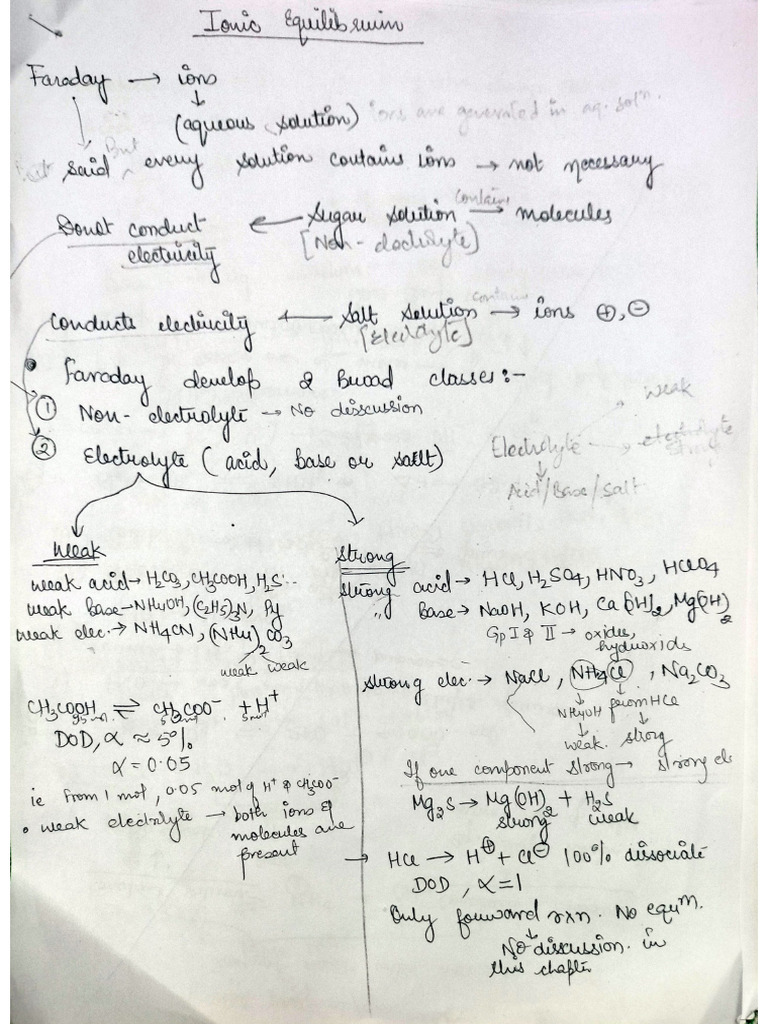 Ionic Equilibrium
Faraday → ions
↓
(aqueous solution) ions are generated in aq. solⁿ.
said But every solution contains ions → not necessary
Donot conduct electricity ← Sugar solution contains → molecules
[Non-electrolyte]
Conducts electricity ← Salt solution contains → ions ⊕, ⊖
[Electrolyte]
• Faraday develop 2 Broad classes:-
① Non-electrolyte → No disscussion
② Electrolyte (acid, base or salt)
weak
Electrolyte → strong
↓
Acid/Base/Salt
Weak
weak acid → H₂CO₃, CH₃COOH, H₂S...
weak Base → NH₄OH, (C₂H₅)₃N, Py
weak elec. → NH₄CN, (NH₄)₂CO₃
weak weak
CH₃COOH ⇌ CH₃COO⁻ + H⁺
95 mol 5 mol 5 mol
DOD, α ≈ 5%
α = 0.05
ie from 1 mol, 0.05 mol of H⁺ & CH₃COO⁻
• weak electrolyte → both ions & molecules are present
Strong
Strong acid → HCl, H₂SO₄, HNO₃, HClO₄
" Base → NaOH, KOH, Ca(OH)₂, Mg(OH)₂
Gp I & II → oxides, hydroxids
Strong elec. → NaCl, NH₄Cl, Na₂CO₃
NH₄OH from HCl
↓ ↓
weak. strong
If one component strong → strong els
Mg₂S → Mg(OH)₂ + H₂S
strong weak
→ HCl → H⊕ + Cl⊖ 100% dissociate
DOD, α = 1
Only forward rxn. No equᵐ.
↓
No discussion. in
this chapter